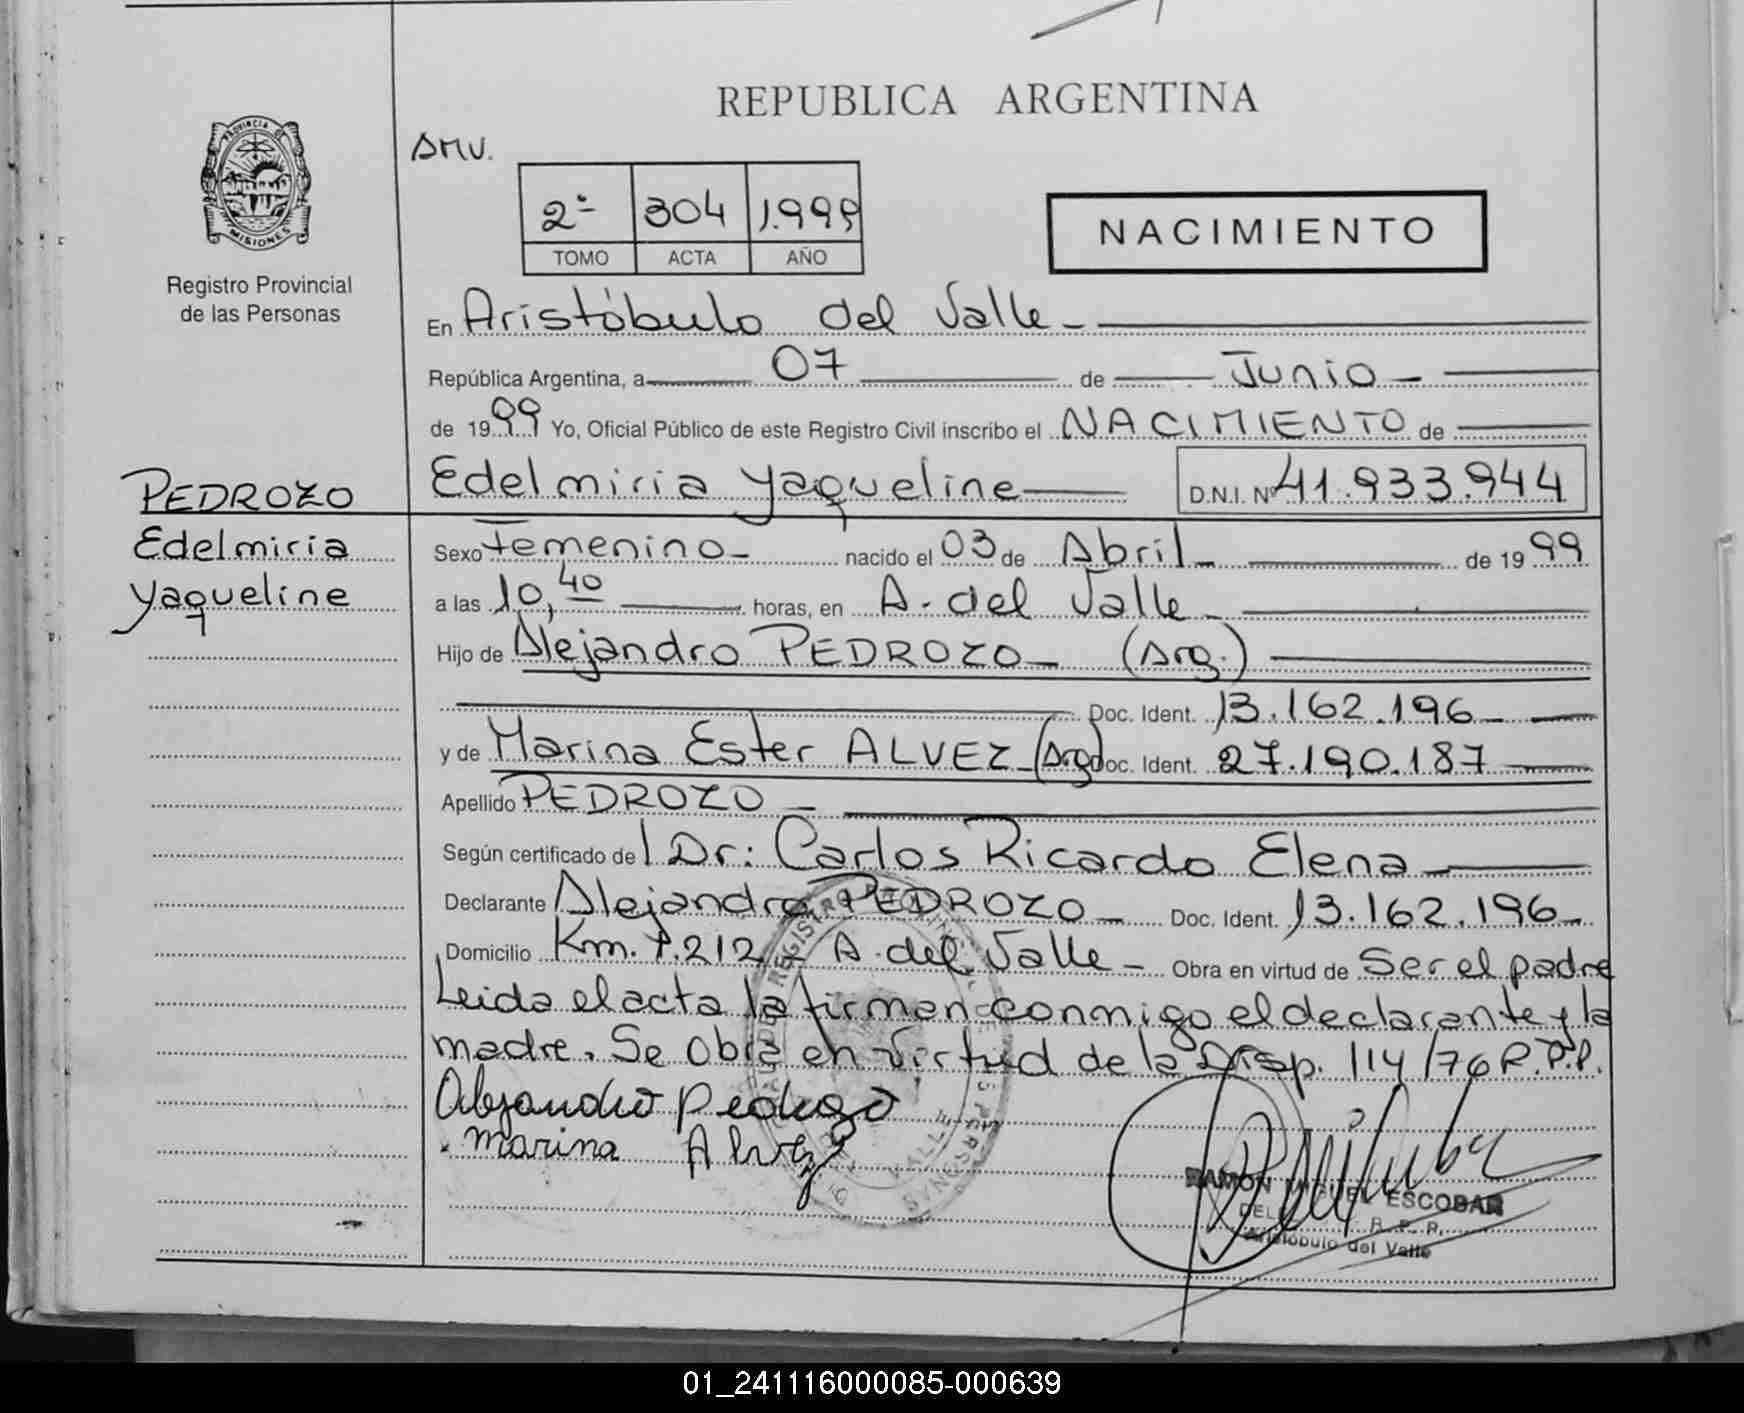 REPUBLICA ARGENTINA
PROVINCIA DE
MISIONES
Registro Provincial
de las Personas
AMV.
2º 304 1.999
TOMO ACTA AÑO
NACIMIENTO
En Aristóbulo del Valle
República Argentina, a 07 de Junio
de 1999 Yo, Oficial Público de este Registro Civil inscribo el NACIMIENTO de
Edelmiria Yaqueline D.N.I. Nº 41.933.944
PEDROZO
Edelmiria
Yaqueline
Sexo Femenino nacido el 03 de Abril de 1999
a las 10,40 horas, en A. del Valle
Hijo de Alejandro PEDROZO (Arg.)
Doc. Ident. 13.162.196
y de Marina Ester ALVEZ (Arg) Doc. Ident. 27.190.187
Apellido PEDROZO
Según certificado de l Dr: Carlos Ricardo Elena
Declarante Alejandro PEDROZO Doc. Ident. 13.162.196
Domicilio Km. 1.212 - A. del Valle Obra en virtud de Ser el padre
Leida el acta la firman conmigo el declarante y la
madre. Se obra en virtud de la Disp. 114/76 R.P.P.
Alejandro Pedrozo
Marina Alvez
RAMON MIGUEL ESCOBAR
DEL R. P. P.
Aristóbulo del Valle
01_241116000085-000639